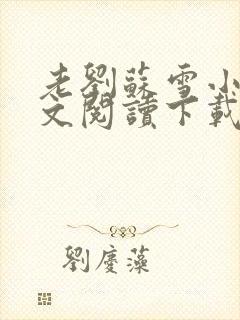 老劉蘇雪小
文閱讀下載
劉慶藻